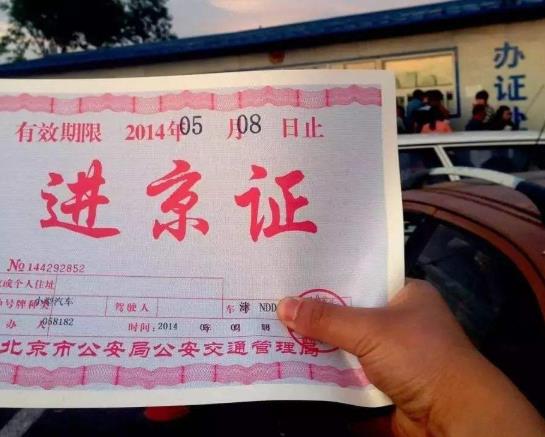 有效期限 2014年05月08日止
进京证
№144292852
或个人住址
号牌种类 小型汽车 驾驶人 车 津 NDD
办 人 058182 时间:2014
北京市公安局公安交通管理局
办证